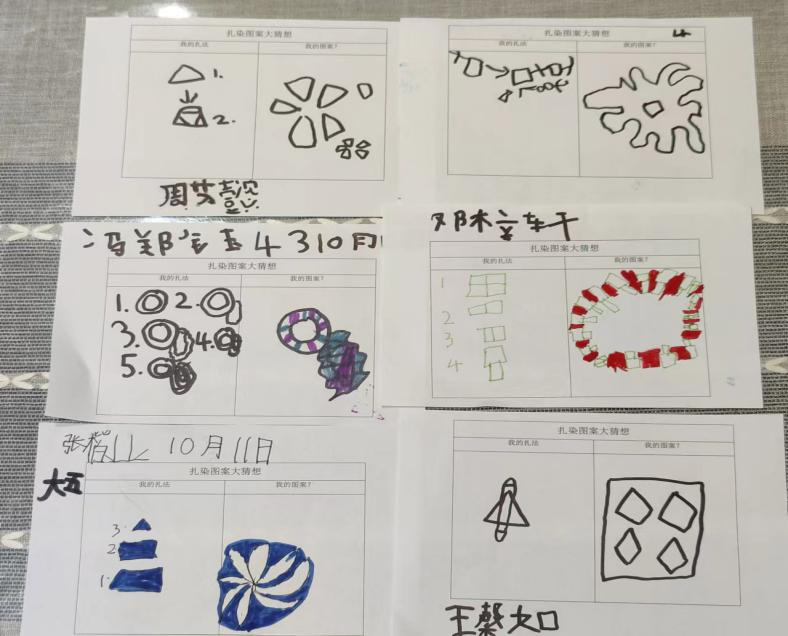 扎染图案大猜想
我的扎法
我的图案?
1.
2.
周艾
扎染图案大猜想
我的扎法
我的图案?
冯郑 4 310月
扎染图案大猜想
我的扎法
我的图案?
1.
2.
3.
4.
5.
邓
扎染图案大猜想
我的扎法
我的图案?
1
2
3
4
张 10月11日
大五
扎染图案大猜想
我的扎法
我的图案?
3.
2.
1.
扎染图案大猜想
我的扎法
我的图案?
王